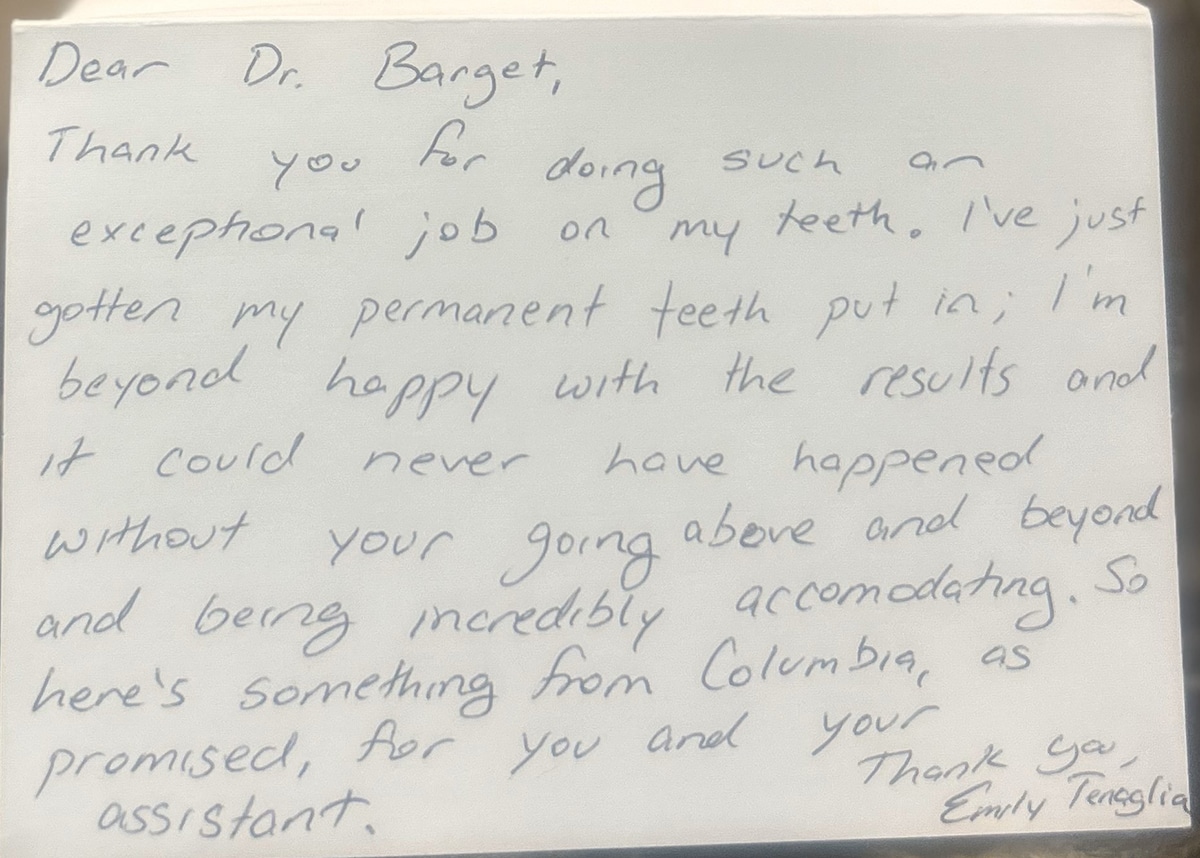 Dear Dr. Barget,
Thank you for doing such an
exceptional job on my teeth. I've just
gotten my permanent teeth put in; I'm
beyond happy with the results and
it could never have happened
without your going above and beyond
and being incredibly accomodating. So
here's something from Columbia, as
promised, for you and your
assistant.
Thank you,
Emily Tenaglia